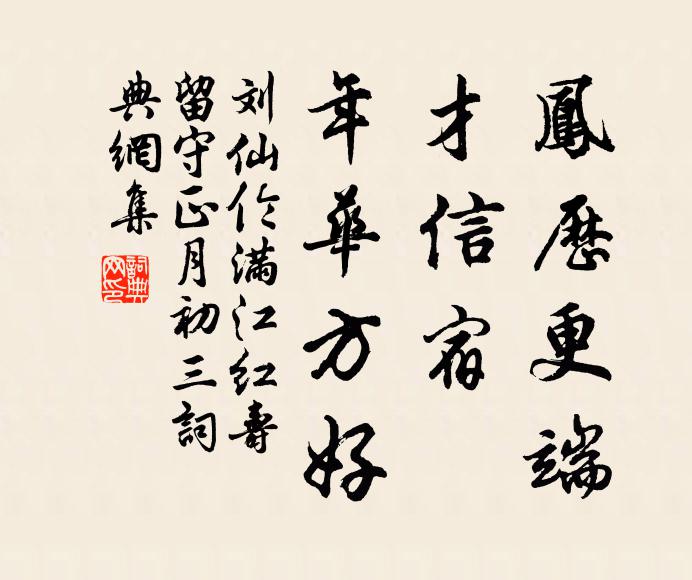 鳳歷更端
才信宿
年華方好
刘仙伦满江红壽
留守正月初三詞
典網集
詞典網印